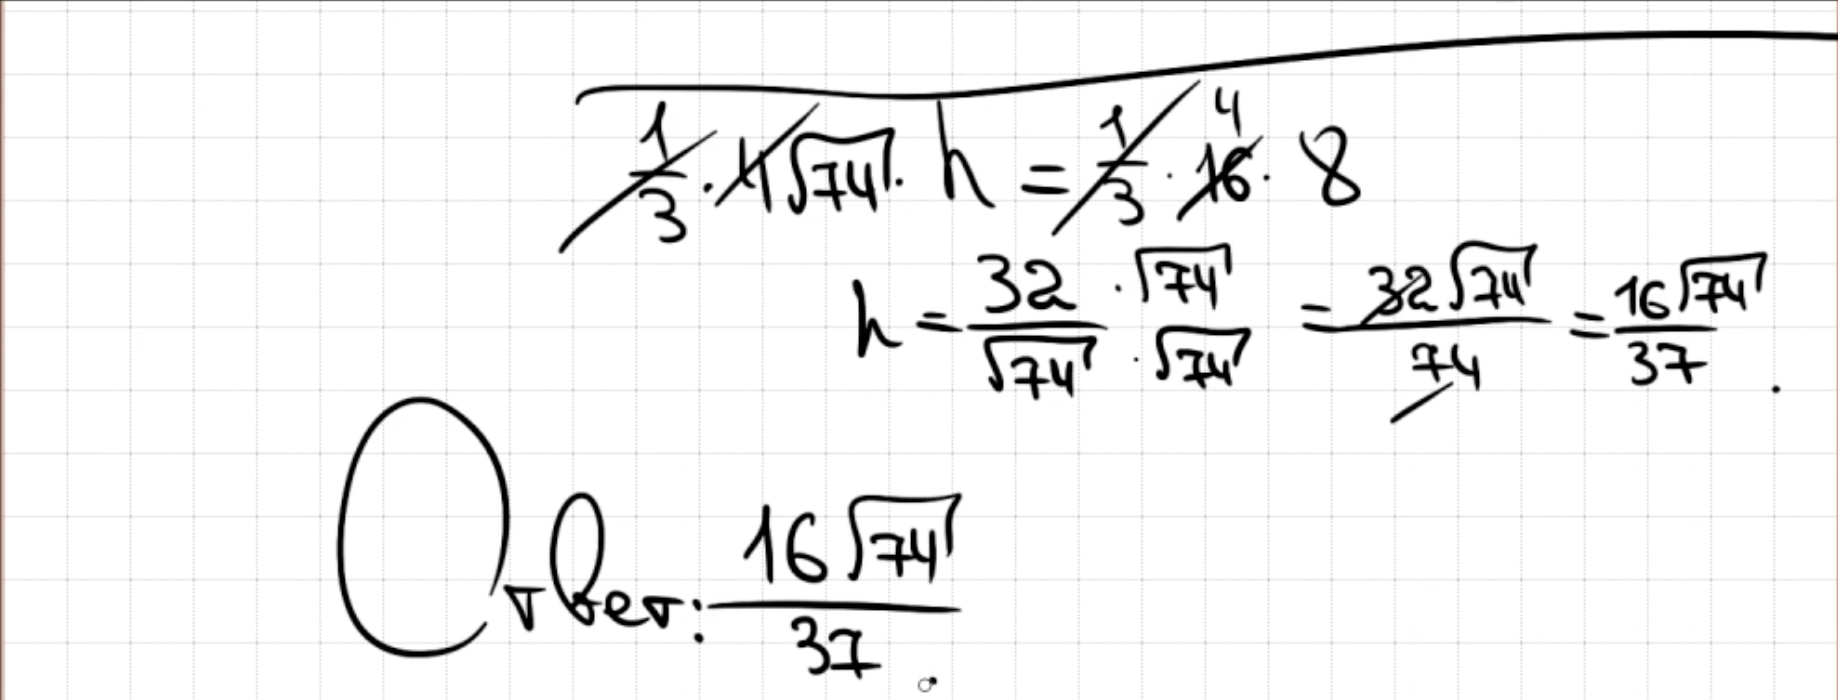 1/3 · 4√74 · h = 1/3 · 16 · 8 4
h = 32/√74 · √74/√74 = 32√74/74 = 16√74/37.
Ответ: 16√74/37.